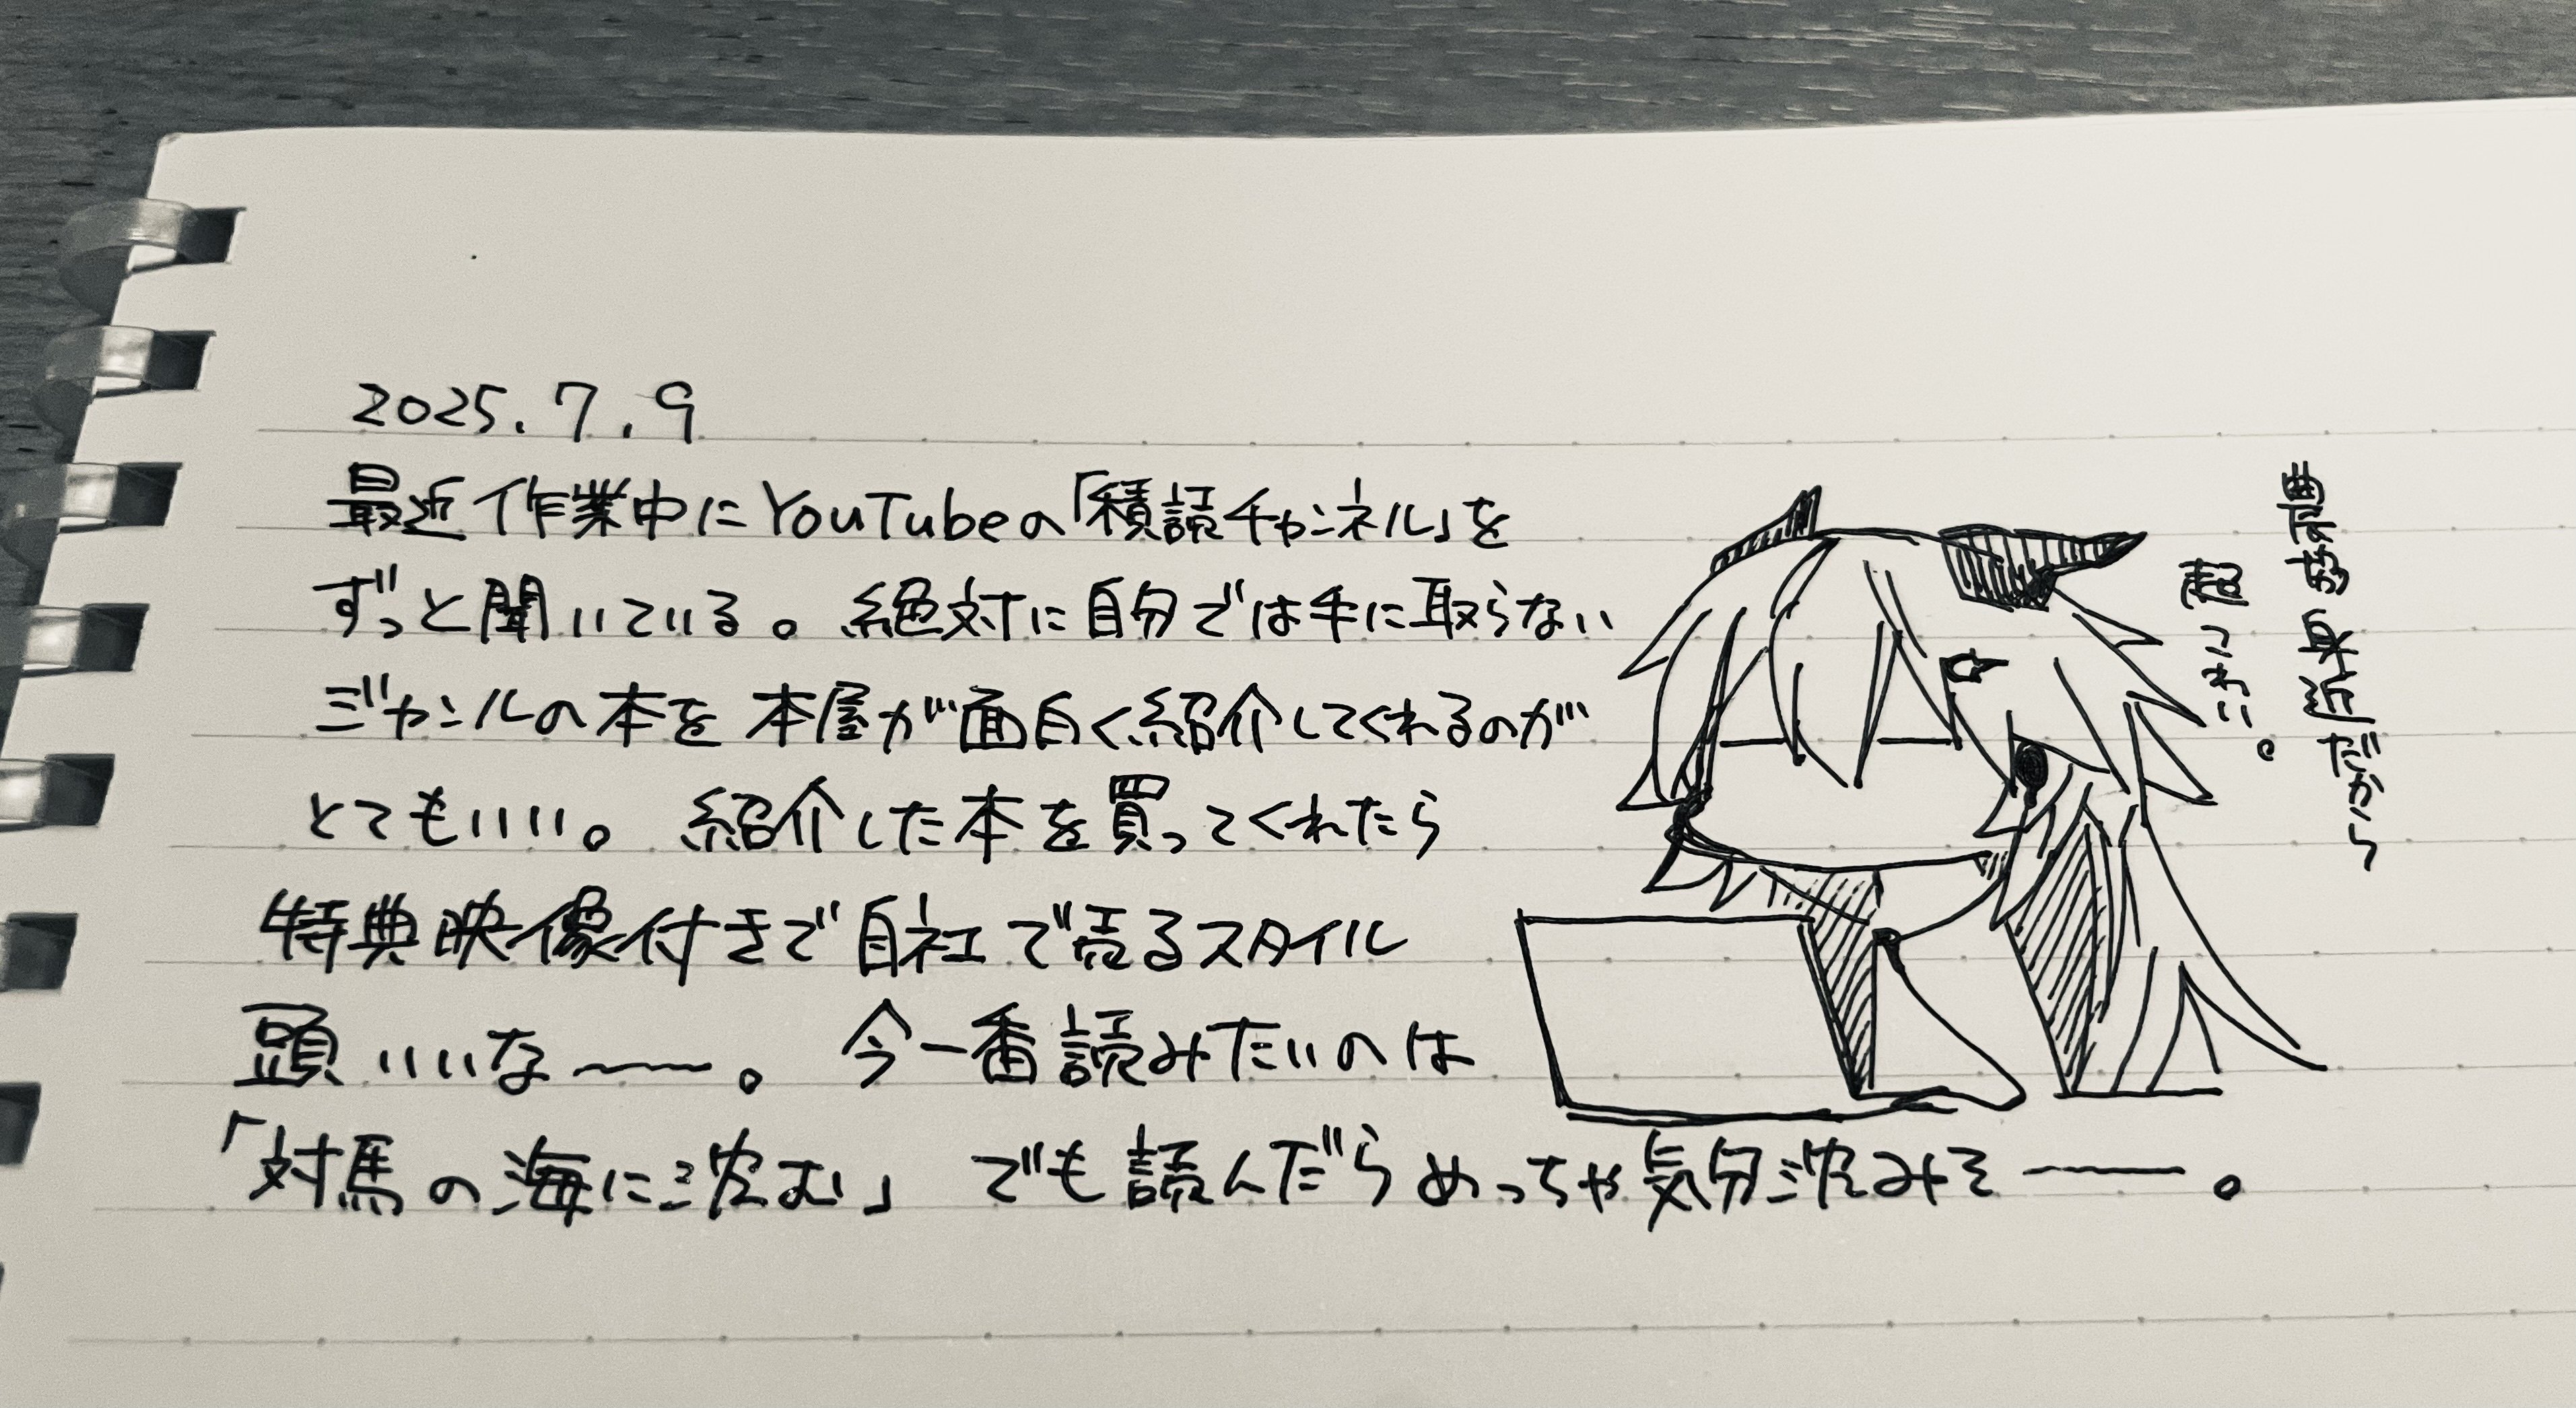 2025.7.9
最近作業中にYouTubeの「積読チャンネル」を
ずっと聞いている。絶対に自分では手に取らない
ジャンルの本を本屋が面白く紹介してくれるのが
とてもいい。紹介した本を買ってくれたら
特典映像付きで自社で売るスタイル
頭いいなー。今一番読みたいのは
「対馬の海に沈む」でも読んだらめっちゃ気分沈みそー。
農協身近だから
超こわい。